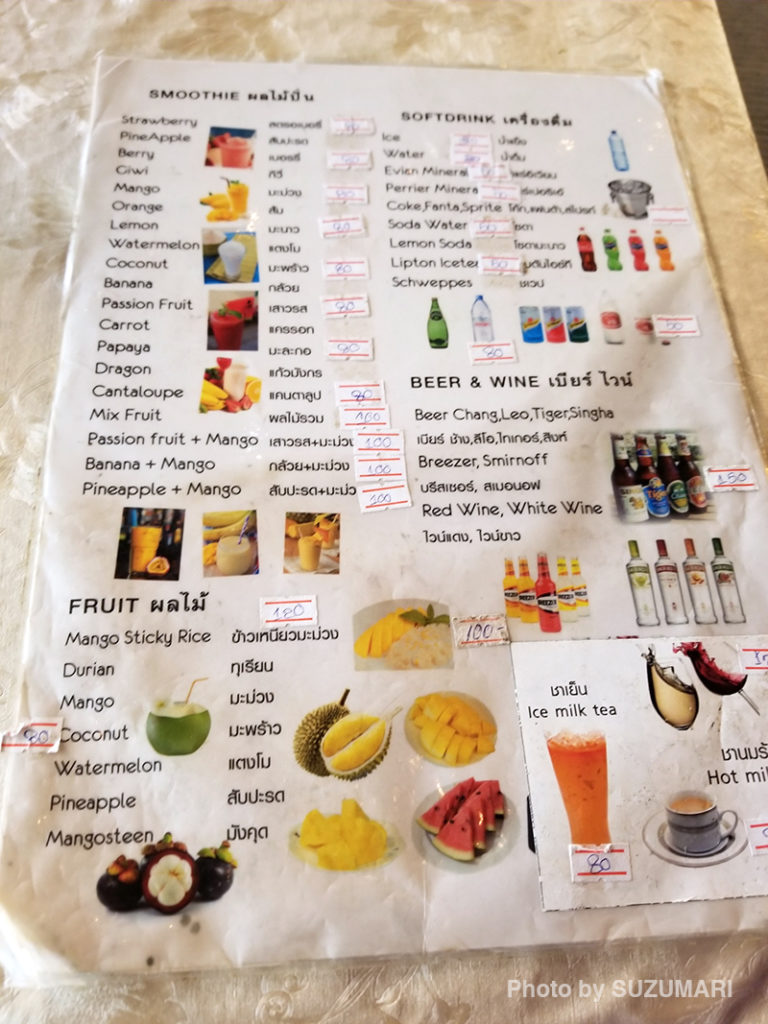 SMOOTHIE ผลไม้ปั่น
Strawberry สตรอเบอรี่
PineApple สับปะรด
Berry เบอรรี่
Giwi กีวี่
Mango มะม่วง
Orange ส้ม
Lemon มะนาว 80
Watermelon แตงโม
Coconut มะพร้าว 80
Banana กล้วย
Passion Fruit เสาวรส 80
Carrot แครรอท
Papaya มะละกอ 80
Dragon แก้วมังกร
Cantaloupe แคนตาลูป 80
Mix Fruit ผลไม้รวม 100
Passion fruit + Mango เสาวรส+มะม่วง 100
Banana + Mango กล้วย+มะม่วง 100
Pineapple + Mango สับปะรด+มะม่ว 100
SOFTDRINK เครื่องดื่ม
Ice น้ำแข็ง
Water น้ำดื่ม
Evien Mineral
Perrier Minera
Coke,Fanta,Sprite โค้ก,แฟนต้า,สไปรท์
Soda Water 50 โซดา
Lemon Soda โซดามะนาว
Lipton Icetea 50
Schweppes ชเวป
80
50
BEER & WINE เบียร์ ไวน์
Beer Chang,Leo,Tiger,Singha
เบียร์ ช้าง,ลีโอ,ไทเกอร์,สิงห์
Breezer, Smirnoff
บรีสเซอร์, สเมอนอฟ
150
Red Wine, White Wine
ไวน์แดง, ไวน์ขาว
FRUIT ผลไม้
180
Mango Sticky Rice ข้าวเหนียวมะม่วง
100-
Durian ทุเรียน
Mango มะม่วง
80 Coconut มะพร้าว
Watermelon แตงโม
Pineapple สับปะรด
Mangosteen มังคุด
ชาเย็น
Ice milk tea
80
ชานมร้
Hot mil
Photo by SUZUMARI